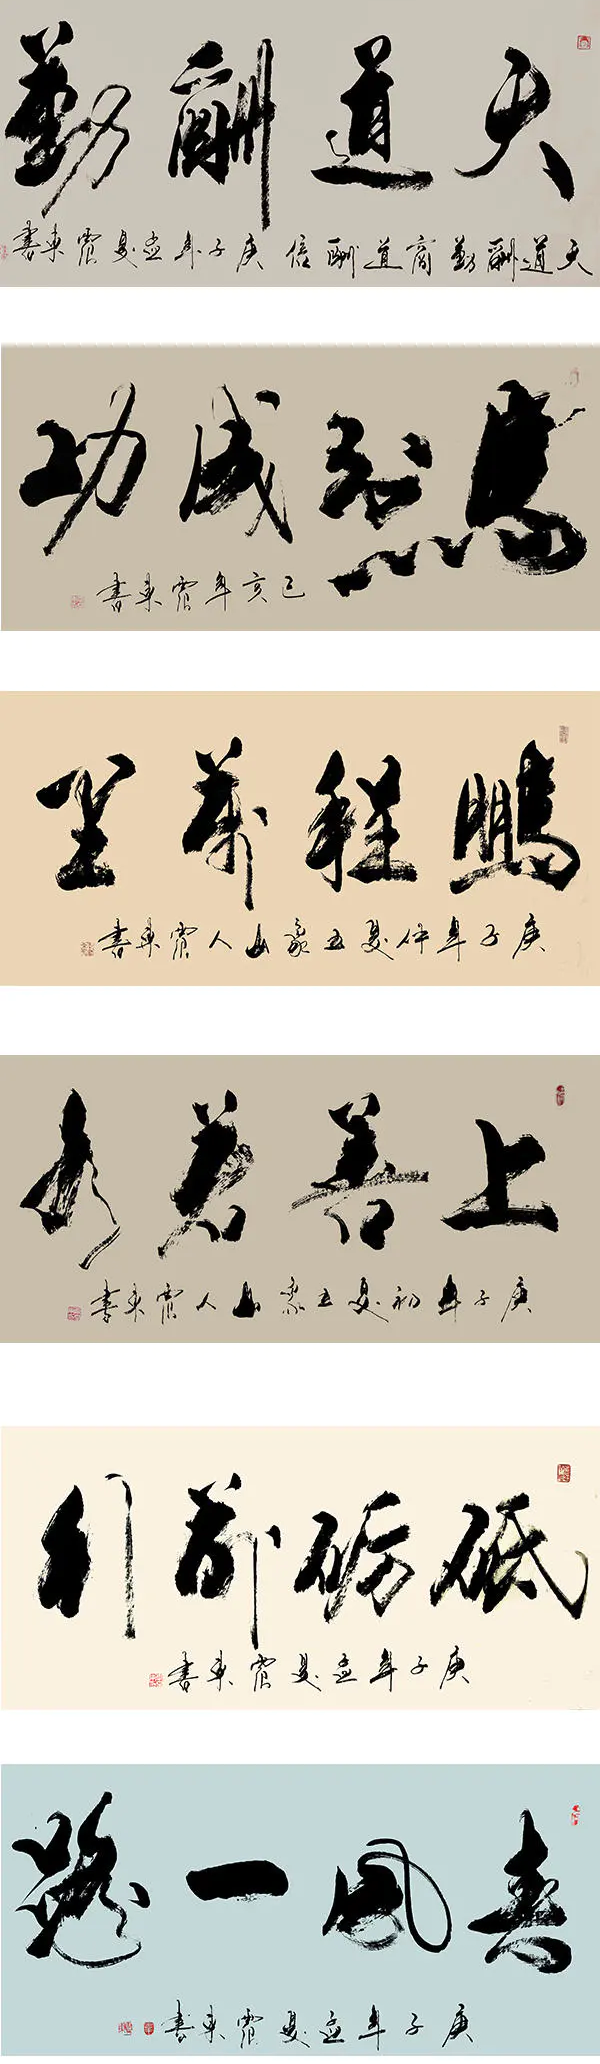 天道酬勤
天道酬勤商道酬信庚子年孟夏震東書
馬到成功
己亥年震東書
鵬程萬里
庚子年仲夏五象山人震東書
上善若水
庚子年初夏五象山人震東書
砥砺前行
庚子年孟夏震東書
春风一路
庚子年孟夏震東書